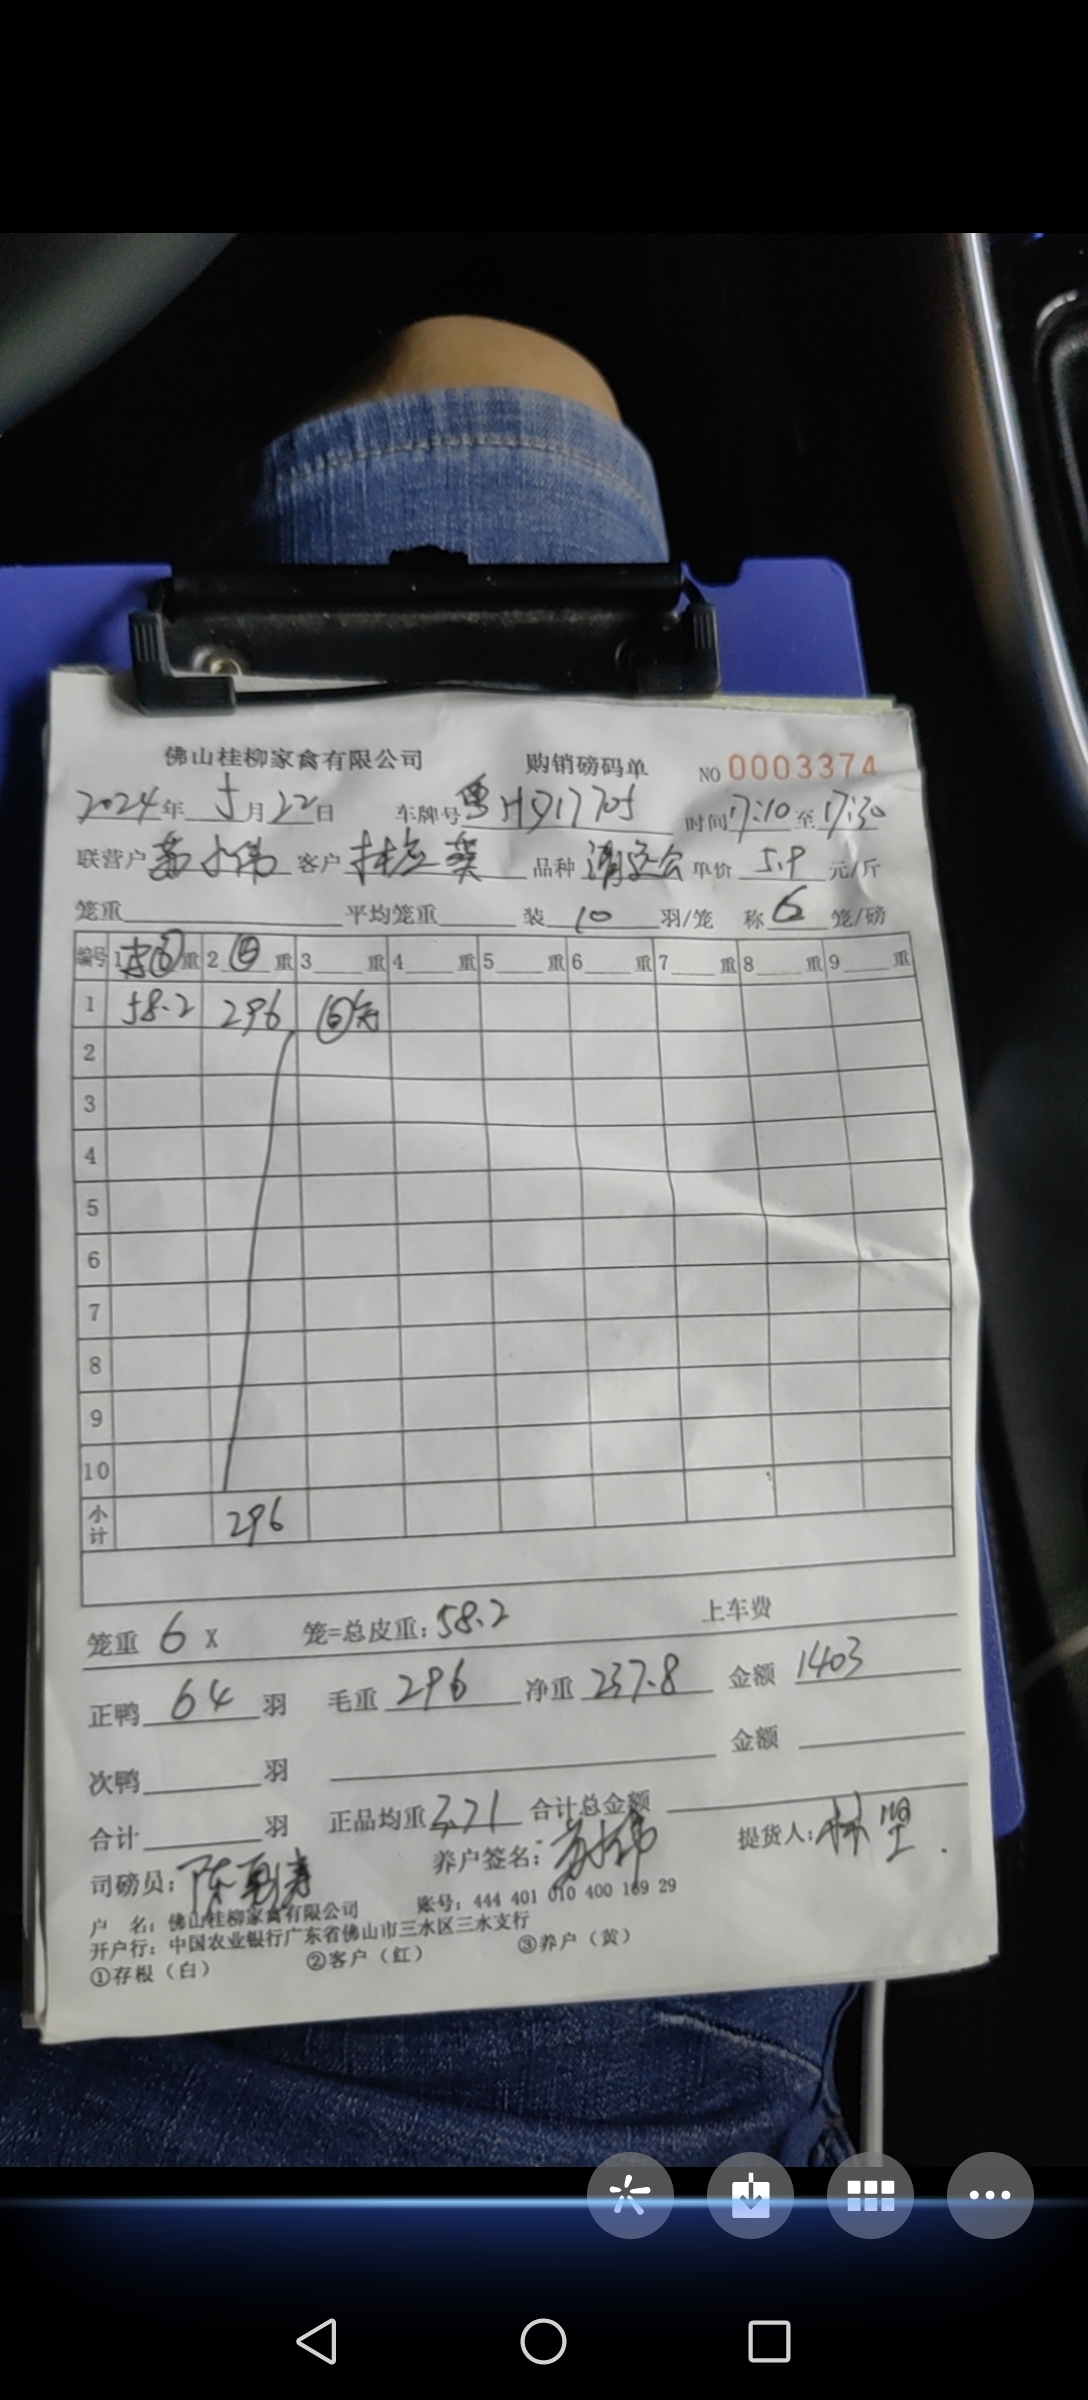 佛山桂柳家禽有限公司 购销磅码单 NO 0003374
2024年 5月22日 车牌号 粤H917705 时间17:10至17:30
联营户 客户 林 品种 清远公 单价 5.9 元/斤
笼重 平均笼重 装 10 羽/笼 称 6 笼/磅
编号 1 皮⑥重 2 ⑥ 重 3 重 4 重 5 重 6 重 7 重 8 重 9 重
1 58.2 296 ⑥
2
3
4
5
6
7
8
9
10
小计 296
笼重 6 X 笼=总皮重: 58.2 上车费
正鸭 64 羽 毛重 296 净重 237.8 金额 1403
次鸭 羽 金额
合计 羽 正品均重 3.71 合计总金额
司磅员: 陈 养户签名: 提货人: 林坚
户 名: 佛山桂柳家禽有限公司 账号: 444 401 010 400 169 29
开户行: 中国农业银行广东省佛山市三水区三水支行
①存根（白） ②客户（红） ③养户（黄）